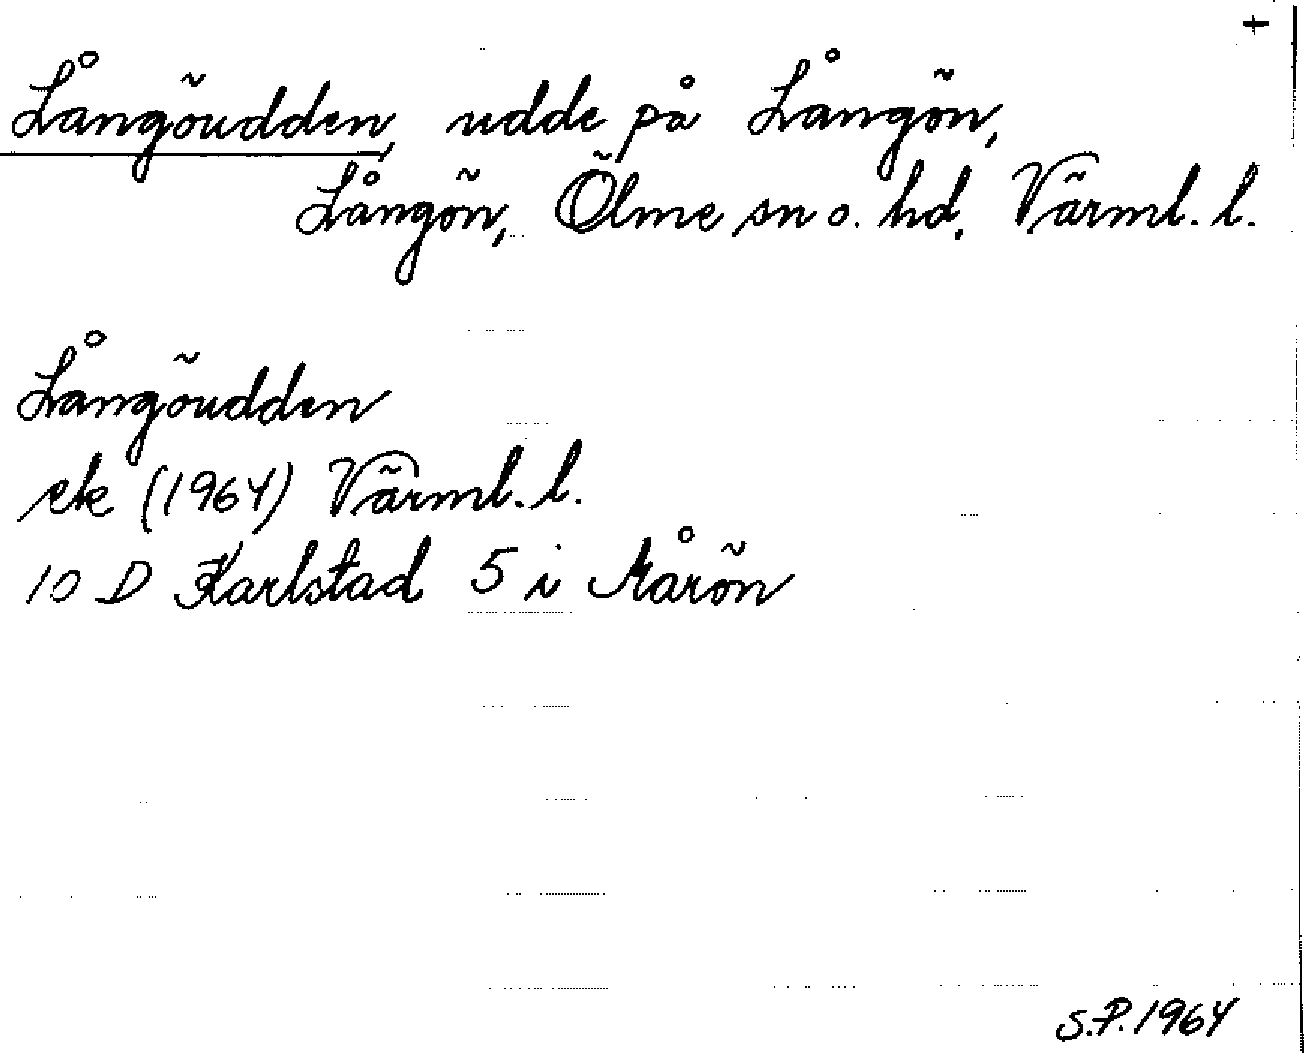 +
Långöudden, udde på Långön,
Långön, Ölme sn o. hd, Värml. l.
Långöudden
ek (1964) Värml. l.
10 D Karlstad 5 i Mårön
S.P. 1964